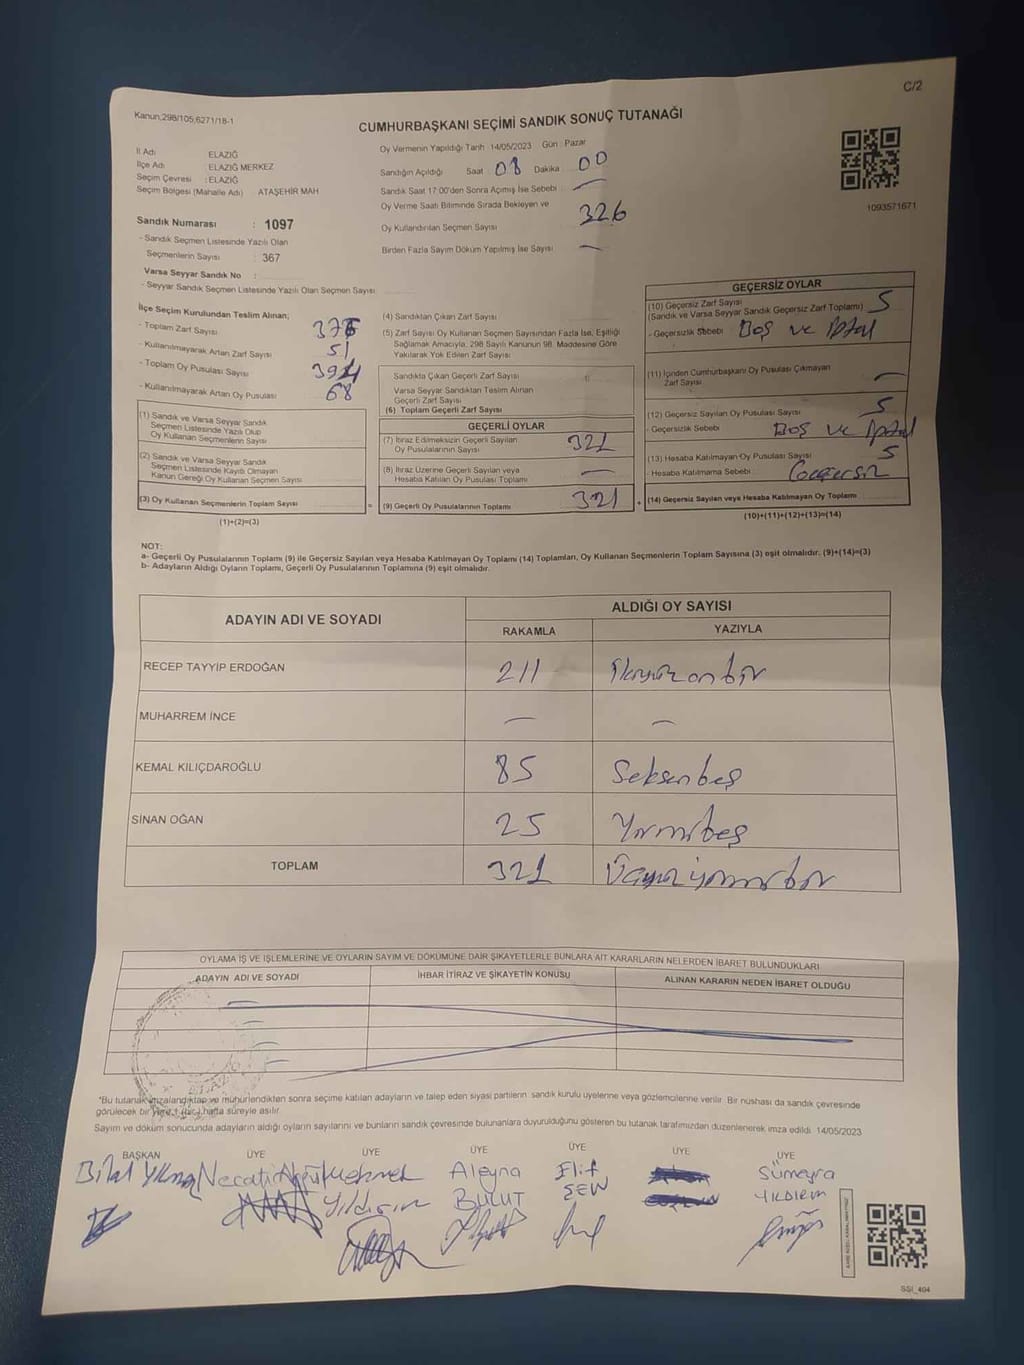 C/2
Kanun;298/105,6271/18-1
CUMHURBAŞKANI SEÇİMİ SANDIK SONUÇ TUTANAĞI
İl Adı ELAZIĞ
İlçe Adı : ELAZIĞ MERKEZ
Seçim Çevresi : ELAZIĞ
Seçim Bölgesi (Mahalle Adı) ATAŞEHİR MAH
Sandık Numarası : 1097
- Sandık Seçmen Listesinde Yazılı Olan
Seçmenlerin Sayısı : 367
Varsa Seyyar Sandık No :
- Seyyar Sandık Seçmen Listesinde Yazılı Olan Seçmen Sayısı
Oy Vermenin Yapıldığı Tarih 14/05/2023 Gün : Pazar
Sandığın Açıldığı Saat 08 Dakika 00
Sandık Saat 17:00'den Sonra Açılmış İse Sebebi : —
Oy Verme Saati Bitiminde Sırada Bekleyen ve
Oy Kullandırılan Seçmen Sayısı 326
Birden Fazla Sayım Döküm Yapılmış İse Sayısı —
1093571671
İlçe Seçim Kurulundan Teslim Alınan;
- Toplam Zarf Sayısı
- Kullanılmayarak Artan Zarf Sayısı 51
- Toplam Oy Pusulası Sayısı
- Kullanılmayarak Artan Oy Pusulası 68
(1) Sandık ve Varsa Seyyar Sandık
Seçmen Listesinde Yazılı Olup
Oy Kullanan Seçmenlerin Sayısı
(2) Sandık ve Varsa Seyyar Sandık
Seçmen Listesinde Kayıtlı Olmayan
Kanun Gereği Oy Kullanan Seçmen Sayısı
(3) Oy Kullanan Seçmenlerin Toplam Sayısı =
(1)+(2)=(3)
(4) Sandıktan Çıkan Zarf Sayısı
(5) Zarf Sayısı Oy Kullanan Seçmen Sayısından Fazla İse, Eşitliği
Sağlamak Amacıyla, 298 Sayılı Kanunun 98. Maddesine Göre
Yakılarak Yok Edilen Zarf Sayısı
Sandıkta Çıkan Geçerli Zarf Sayısı
Varsa Seyyar Sandıktan Teslim Alınan
Geçerli Zarf Sayısı
(6) Toplam Geçerli Zarf Sayısı
GEÇERLİ OYLAR
(7) İtiraz Edilmeksizin Geçerli Sayılan
Oy Pusulalarının Sayısı 321
(8) İtiraz Üzerine Geçerli Sayılan veya
Hesaba Katılan Oy Pusulası Toplamı —
(9) Geçerli Oy Pusulalarının Toplamı 321 +
GEÇERSİZ OYLAR
(10) Geçersiz Zarf Sayısı
(Sandık ve Varsa Seyyar Sandık Geçersiz Zarf Toplamı) 5
- Geçersizlik Sebebi : Boş ve İptal
(11) İçinden Cumhurbaşkanı Oy Pusulası Çıkmayan
Zarf Sayısı —
(12) Geçersiz Sayılan Oy Pusulası Sayısı 5
- Geçersizlik Sebebi Boş ve İptal
(13) Hesaba Katılmayan Oy Pusulası Sayısı 5
- Hesaba Katılmama Sebebi : Geçersiz
(14) Geçersiz Sayılan veya Hesaba Katılmayan Oy Toplamı
(10)+(11)+(12)+(13)=(14)
NOT:
a- Geçerli Oy Pusulalarının Toplamı (9) ile Geçersiz Sayılan veya Hesaba Katılmayan Oy Toplamı (14) Toplamları, Oy Kullanan Seçmenlerin Toplam Sayısına (3) eşit olmalıdır. (9)+(14)=(3)
b- Adayların Aldığı Oyların Toplamı, Geçerli Oy Pusulalarının Toplamına (9) eşit olmalıdır.
ADAYIN ADI VE SOYADI ALDIĞI OY SAYISI
RAKAMLA YAZIYLA
RECEP TAYYİP ERDOĞAN 211 ikiyüzonbir
MUHARREM İNCE — —
KEMAL KILIÇDAROĞLU 85 Seksenbeş
SİNAN OĞAN 25 Yirmibeş
TOPLAM 321 Üçyüzyirmibir
OYLAMA İŞ VE İŞLEMLERİNE VE OYLARIN SAYIM VE DÖKÜMÜNE DAİR ŞİKAYETLERLE BUNLARA AİT KARARLARIN NELERDEN İBARET BULUNDUKLARI
ADAYIN ADI VE SOYADI İHBAR İTİRAZ VE ŞİKAYETİN KONUSU ALINAN KARARIN NEDEN İBARET OLDUĞU
*Bu tutanak imzalandıktan ve mühürlendikten sonra seçime katılan adayların ve talep eden siyasi partilerin sandık kurulu üyelerine veya gözlemcilerine verilir. Bir nüshası da sandık çevresinde
görülecek bir yere 1 (bir) hafta süreyle asılır.
Sayım ve döküm sonucunda adayların aldığı oyların sayılarını ve bunların sandık çevresinde bulunanlara duyurulduğunu gösteren bu tutanak tarafımızdan düzenlenerek imza edildi. 14/05/2023
BAŞKAN ÜYE ÜYE ÜYE ÜYE ÜYE ÜYE
Bilal Necati Mehmet Aleyna Elif Sümeyra
Yıldırım BULUT ŞEN YILDIRIM
SSİ_404